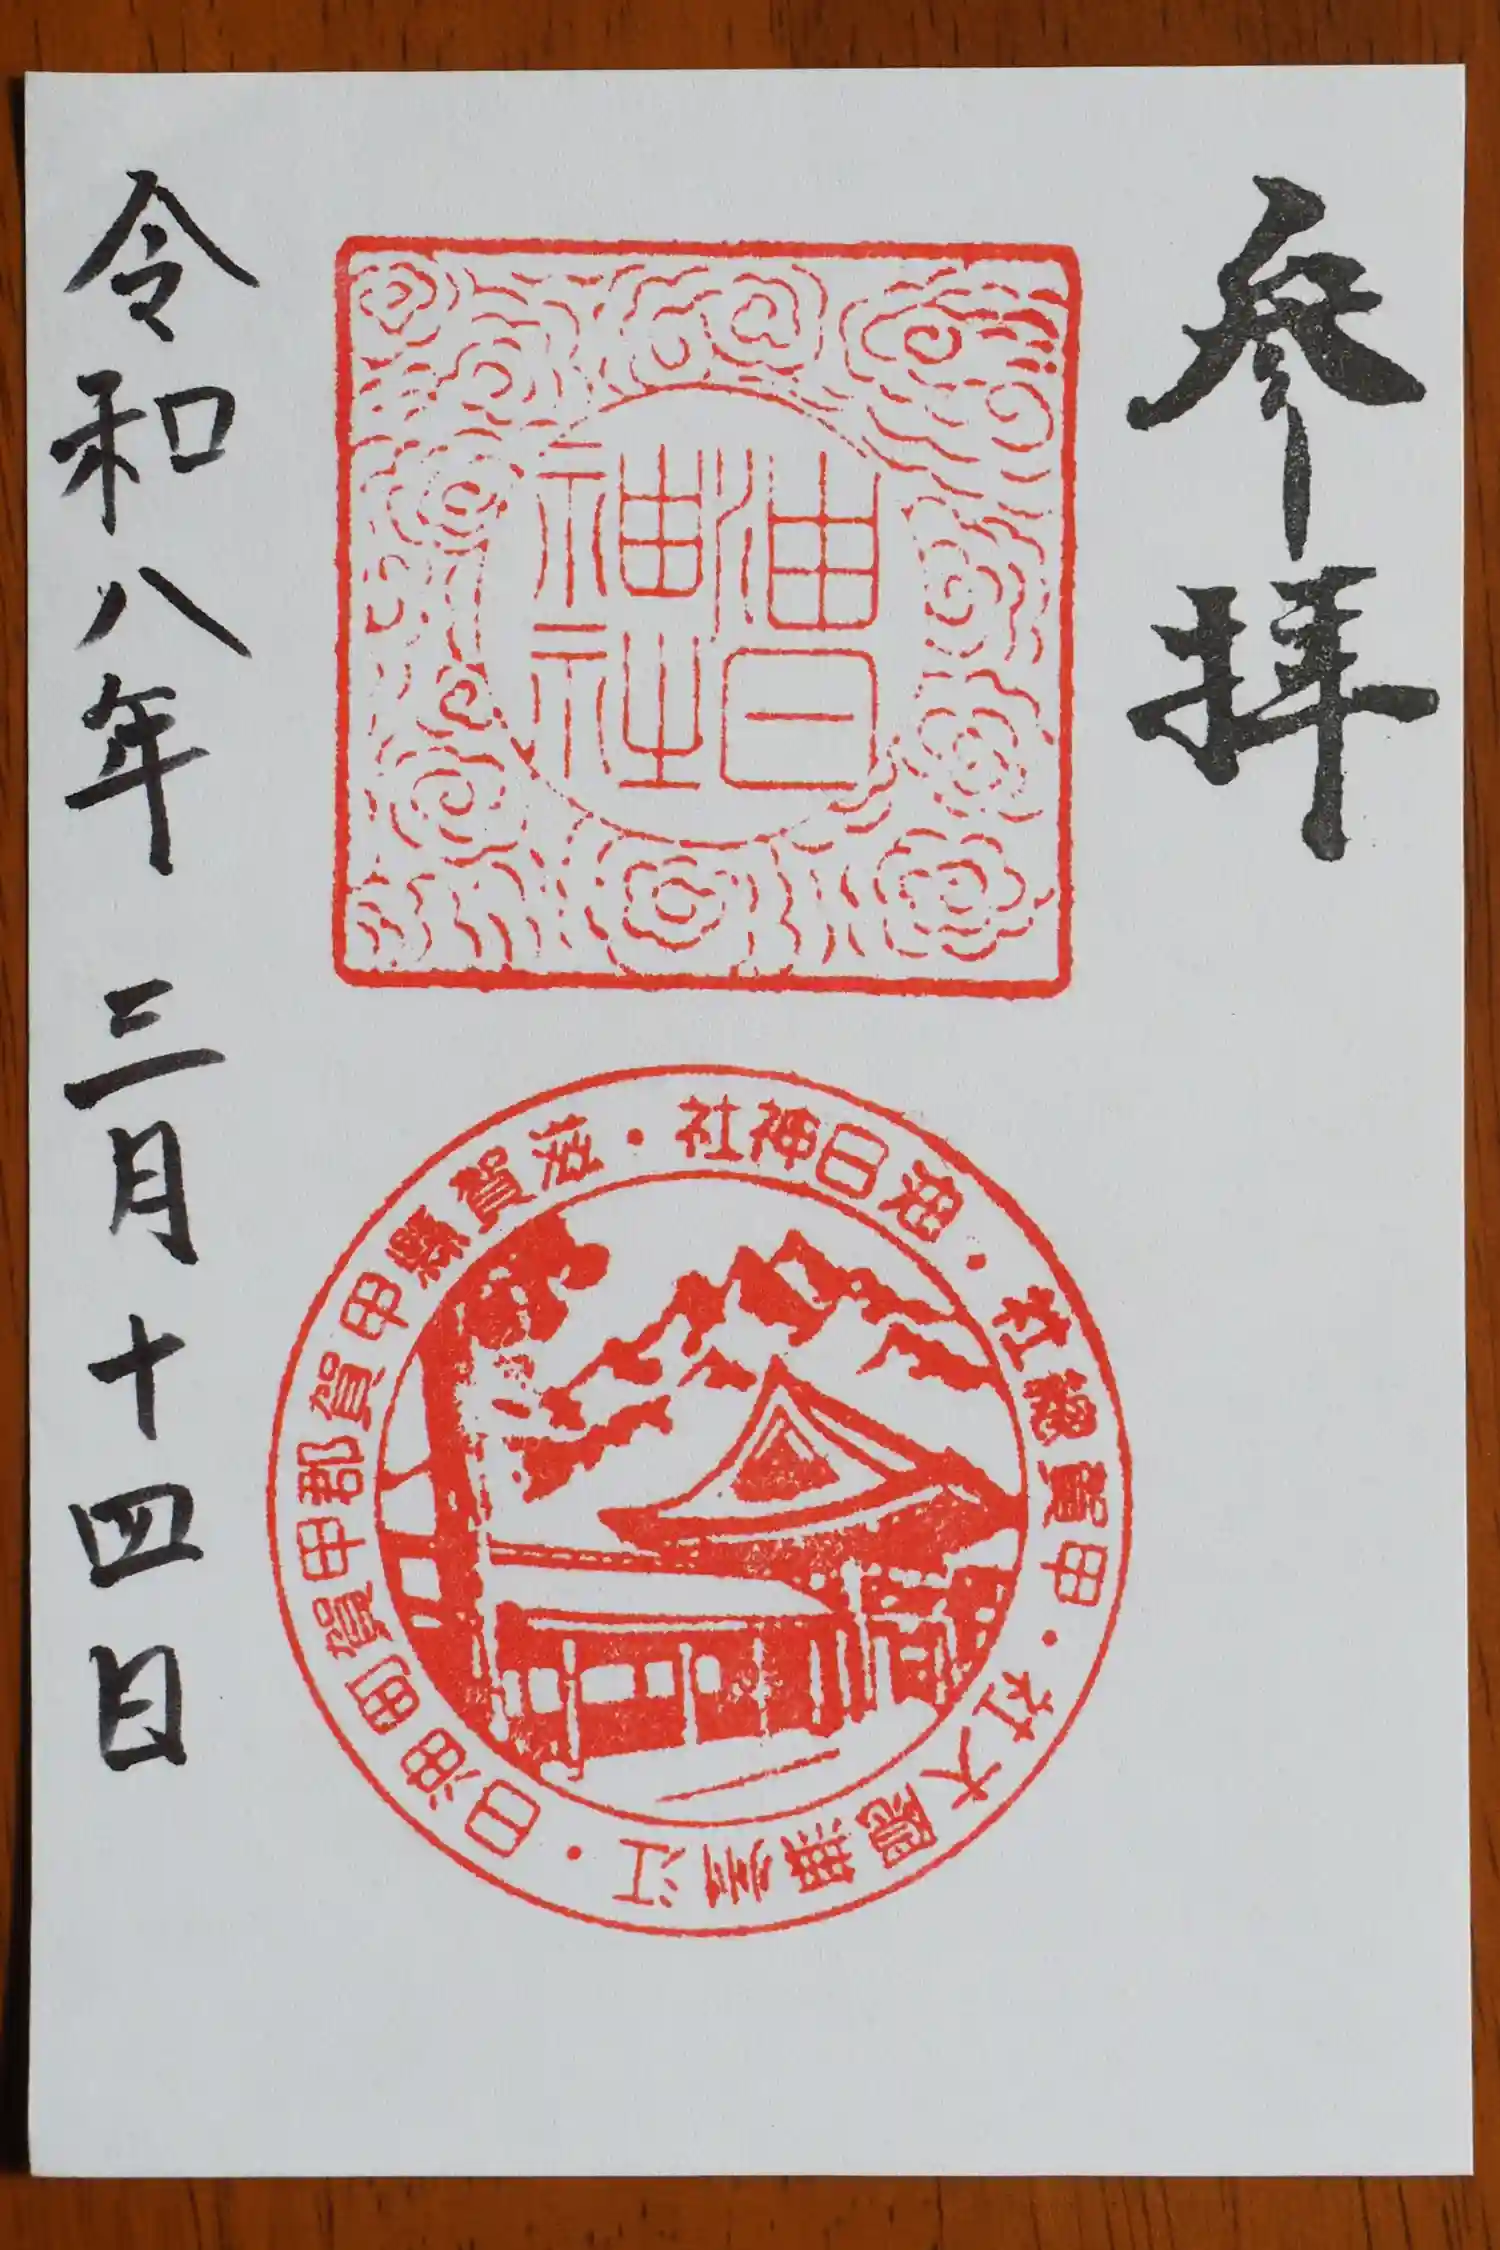 参拝
油日
神社
油日神社・滋賀縣甲賀郡甲賀町油日・江州無隠大社・甲賀總社・
令和八年三月十四日